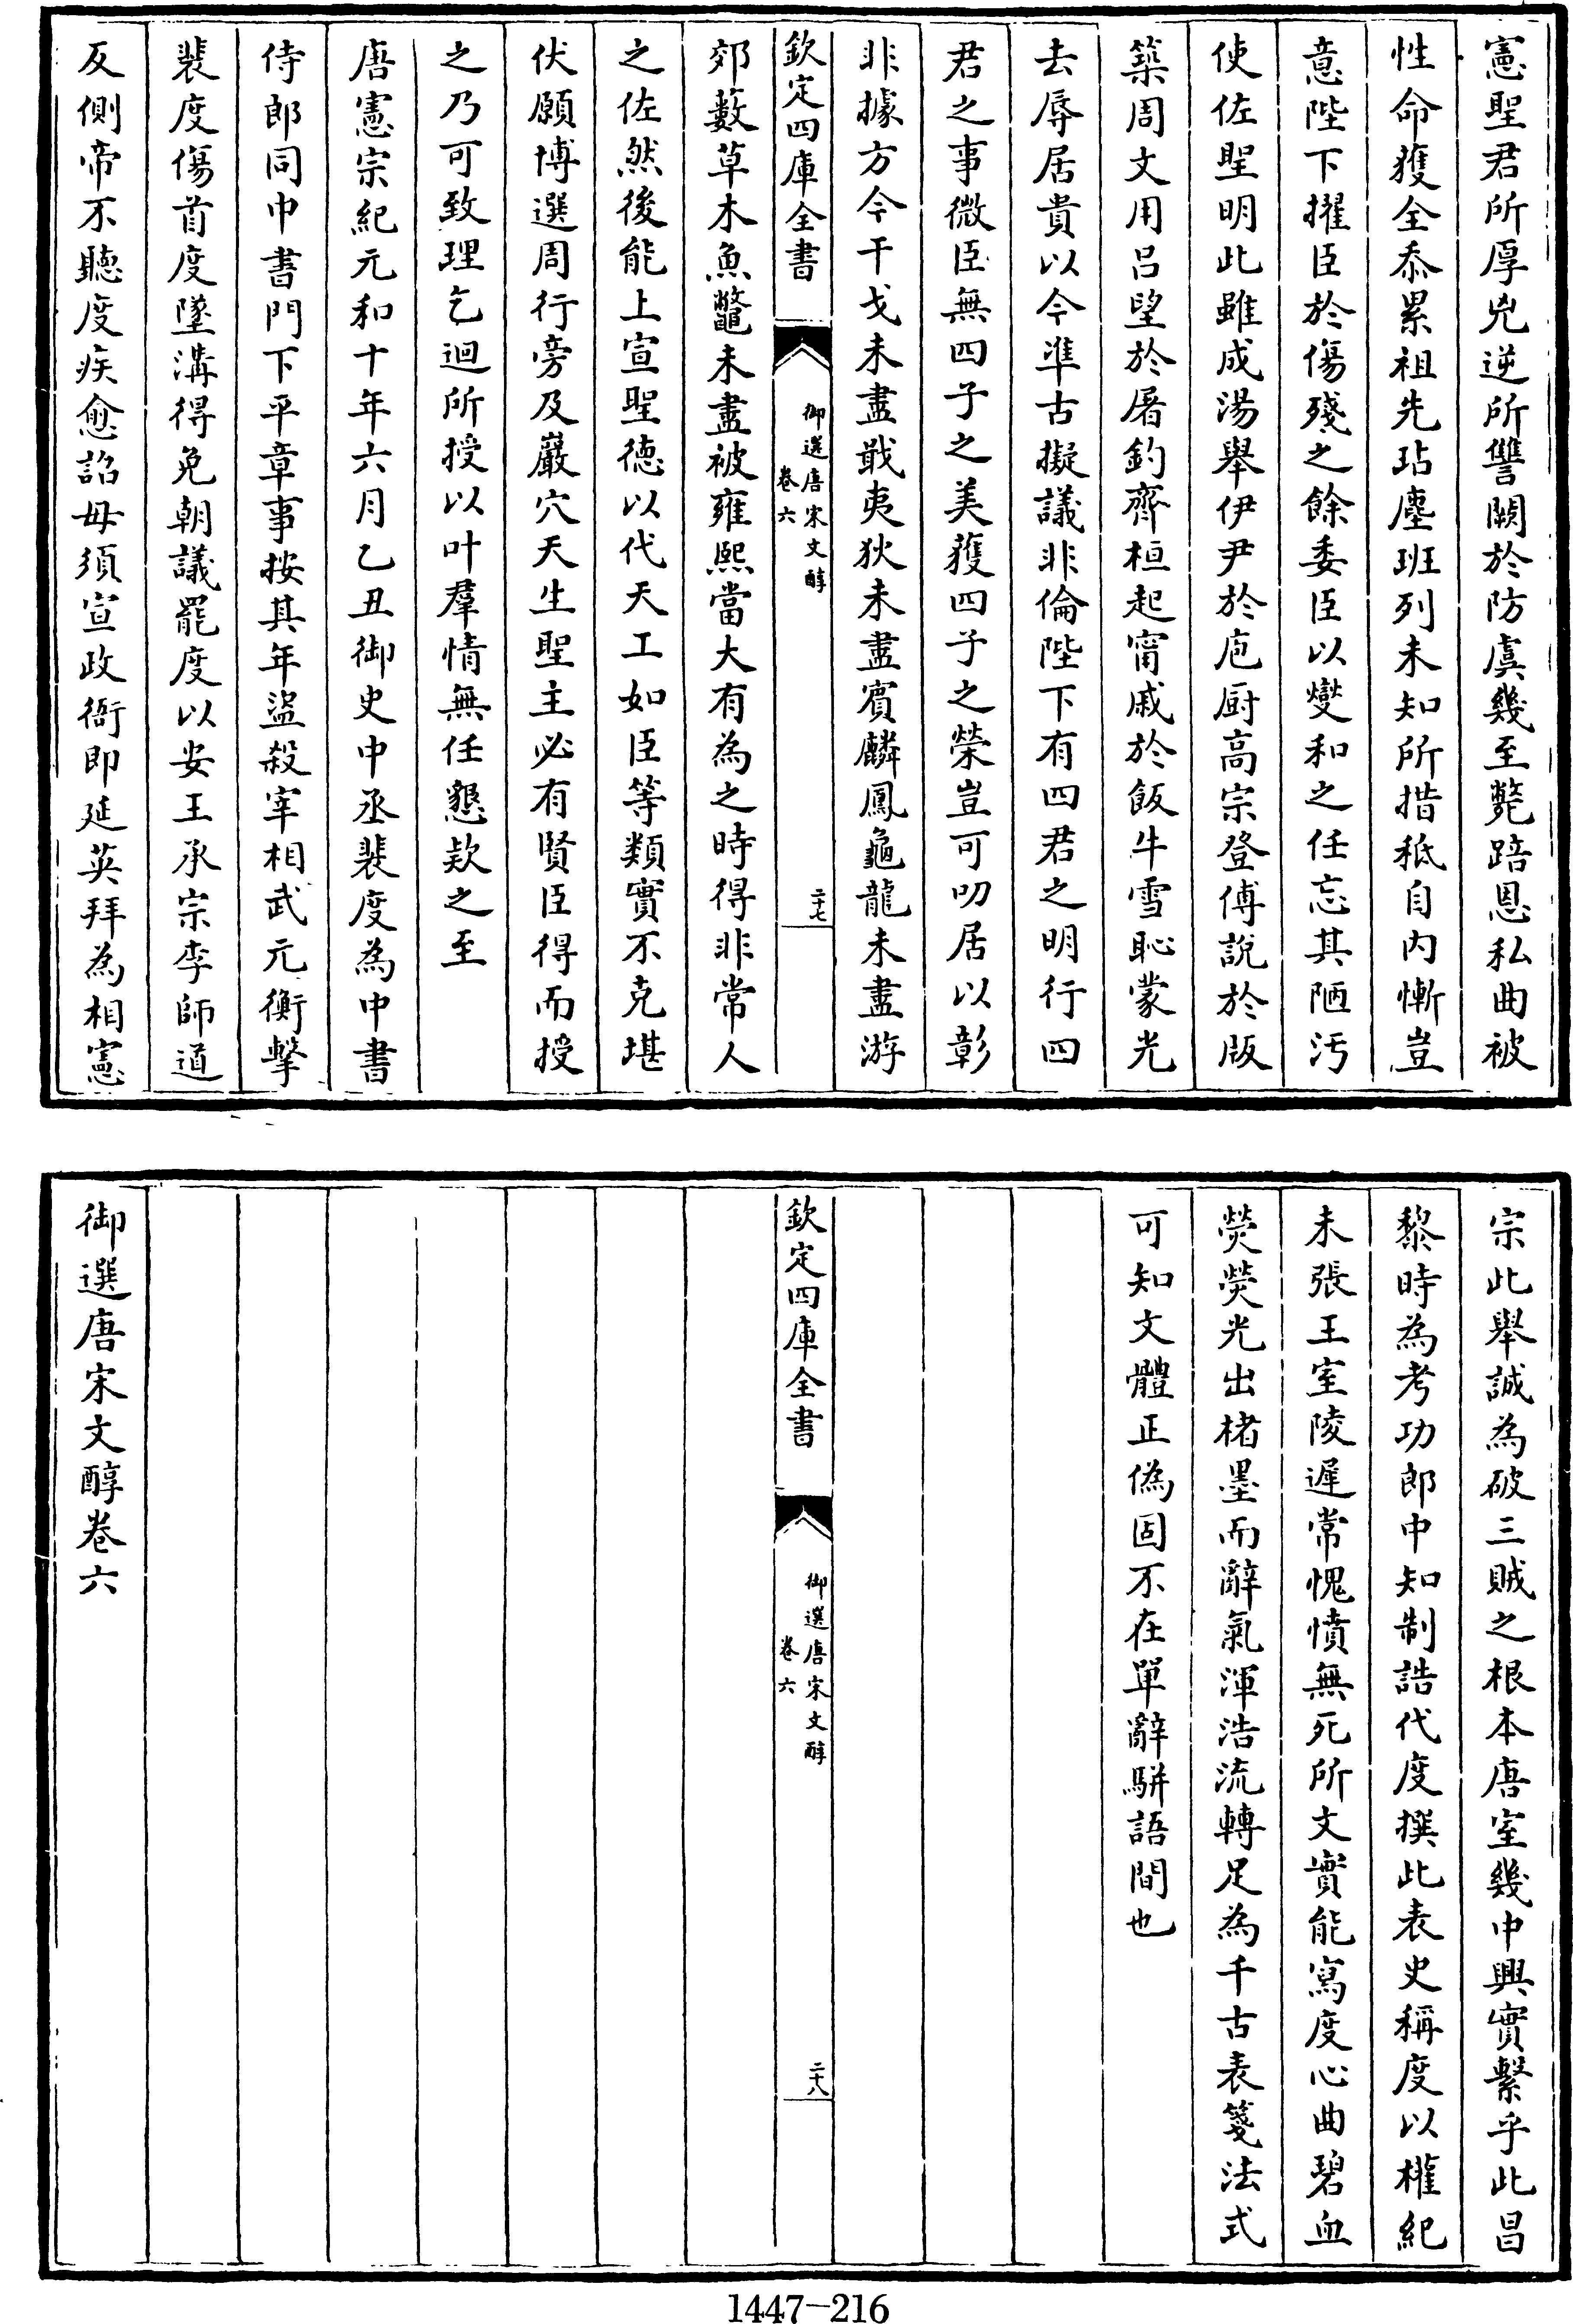 憲聖君所厚兇逆所讐闕於防虞幾至斃踣恩私曲被
性命獲全忝累祖先玷塵班列未知所措秖自内慚豈
意陛下擢臣於傷殘之餘委臣以燮和之任忘其陋汚
使佐聖明此雖成湯舉伊尹於庖厨髙宗登傅說於版
築周文用吕望於屠釣齊桓起甯戚於飯牛雪恥蒙光
去辱居貴以今凖古擬議非倫陛下有四君之明行四
君之事微臣無四子之美獲四子之榮豈可叨居以彰
非據方今干戈未盡戢夷狄未盡賓麟鳳龜龍未盡游
欽定四庫全書
御選唐宋文醇
卷六
二十七
郊藪草木魚鼈未盡被雍熙當大有為之時得非常人
之佐然後能上宣聖德以代天工如臣等類實不克堪
伏願博選周行旁及巖穴天生聖主必有賢臣得而授
之乃可致理乞迴所授以叶羣情無任懇欵之至
唐憲宗紀元和十年六月乙丑御史中丞裴度為中書
侍郎同中書門下平章事按其年盜殺宰相武元衡擊
裴度傷首度墜溝得免朝議罷度以安王承宗李師道
反側帝不聽度疾愈詔毋須宣政衙即延英拜為相憲
宗此舉誠為破三賊之根本唐室幾中興實繫乎此昌
黎時為考功郎中知制誥代度撰此表史稱度以權紀
未張王室陵遲常愧憤無死所文實能寫度心曲碧血
熒熒光出楮墨而辭氣渾浩流轉足為千古表箋法式
可知文體正偽固不在單辭駢語間也
欽定四庫全書
御選唐宋文醇
卷六
二十八
御選唐宋文醇卷六
1447-216